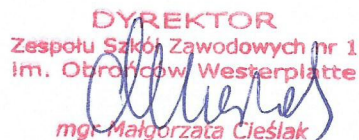 DYREKTOR
Zespołu Szkół Zawodowych nr 1
im. Obrońców Westerplatte
mgr Małgorzata Cieślak